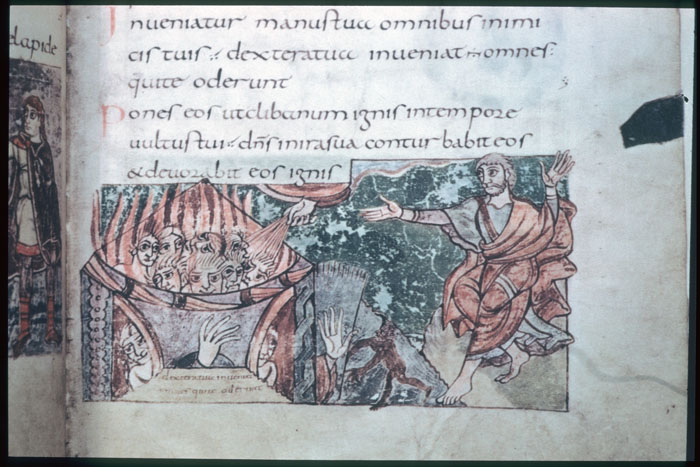 lapide
Inueniatur manustua omnibus inimi
cis tuis dexteratua inueniat omnes
quite oderunt
Pones eos utclibanum ignis intempore
uultustui dn̄s inirasua conturbabit eos
& deuorabit eos ignis
dexteratua inueniat
omnes quite oderunt